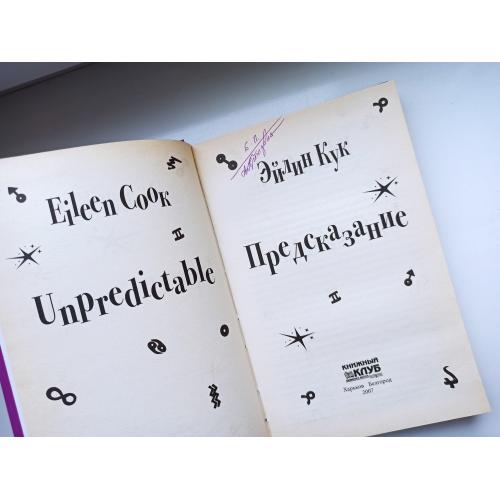 Eileen Cook
Unpredictable
Эйлин Кук
Предсказание
КНИЖНЫЙ
КЛУБ
Харьков Белгород
2007